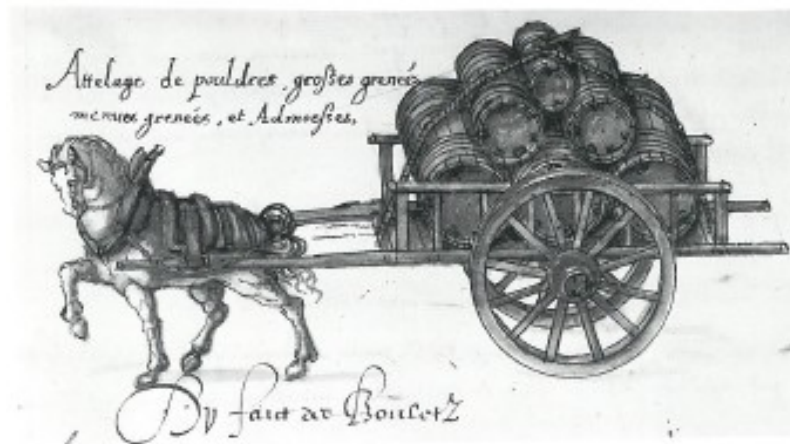 Attelage de pouldres, großes grenées
menues grenées, et Admorsses,
Du faict des Bouletz